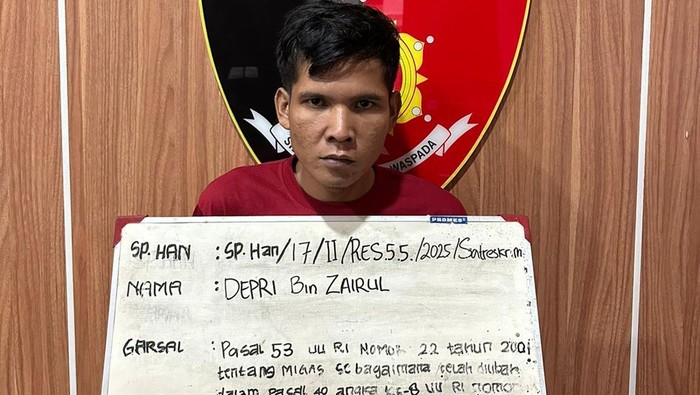 WASPADA
PROMES
SP. HAN : SP. Han/17/II/RES.5.5./2025/Satreskrim
NAMA : DEPRI Bin ZAIRUL
GARSAL : Pasal 53 UU RI NOMOR 22 tahun 2001
tentang MIGAS sebagaimana telah diubah
dalam pasal 40 angka ke-8 UU RI nomor